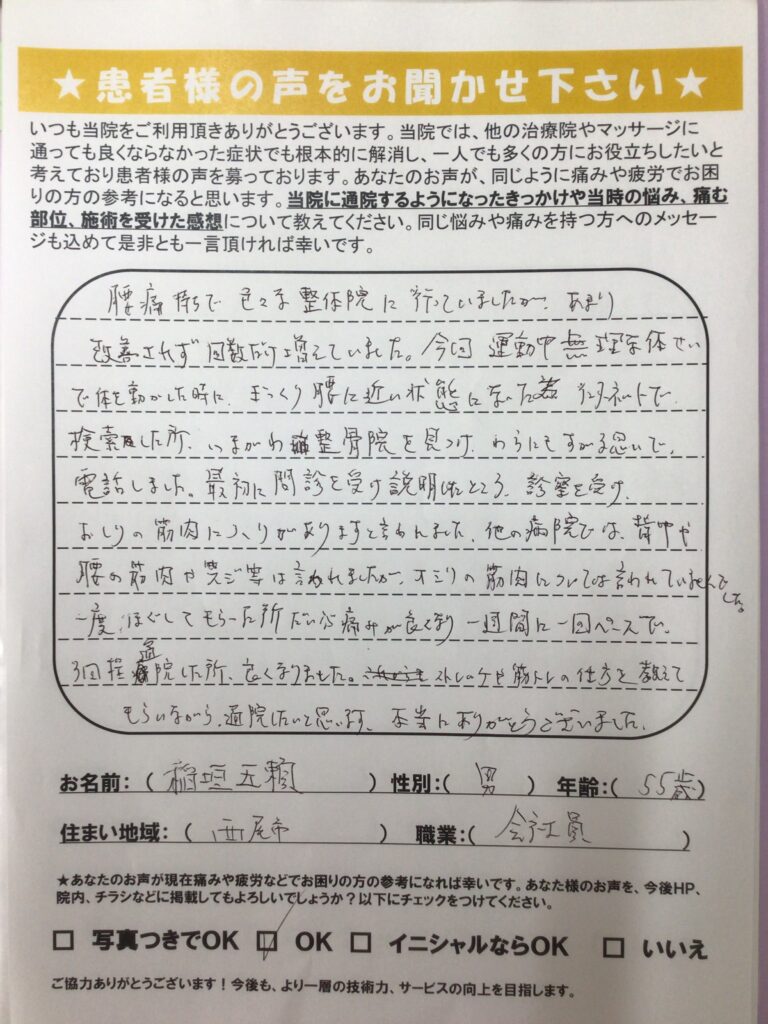 ★患者様の声をお聞かせ下さい★
いつも当院をご利用頂きありがとうございます。当院では、他の治療院やマッサージに
通っても良くならなかった症状でも根本的に解消し、一人でも多くの方にお役立ちしたいと
考えており患者様の声を募っております。あなたのお声が、同じように痛みや疲労でお困
りの方の参考になると思います。当院に通院するようになったきっかけや当時の悩み、痛む
部位、施術を受けた感想について教えてください。同じ悩みや痛みを持つ方へのメッセー
ジも込めて是非とも一言頂ければ幸いです。
腰痛持ちで色々な整体院に行っていましたが、あまり
改善されず回数だけ増えていました。今回運動中無理な体せい
で体を動かした時に、ぎっくり腰に近い状態になった為インターネットで、
検索した所、いまがわ整骨院を見つけ、わらにもすがる思いで、
電話しました。最初に問診を受け説明したところ、診察を受け、
おしりの筋肉にコリがありますと言われました。他の病院では、背中や
腰の筋肉やスジ等は言われましたが、オシリの筋肉については言われていませんでした。
一度、ほぐしてもらった所だいぶ痛みが良くなり一週間に一回ペースで、
3回程通院した所、良くなりました。ストレッチや筋トレの仕方を教えて
もらいながら、通院したいと思います。本当にありがとうございました。
お名前:( 稲垣 ) 性別:( 男 ) 年齢:( 55歳 )
住まい地域:( 西尾市 ) 職業:( 会社員 )
★あなたのお声が現在痛みや疲労などでお困りの方の参考になれば幸いです。あなた様のお声を、今後HP、
院内、チラシなどに掲載してもよろしいでしょうか？以下にチェックをつけてください。
□ 写真つきでOK ☑ OK □ イニシャルならOK □ いいえ
ご協力ありがとうございます！今後も、より一層の技術力、サービスの向上を目指します。